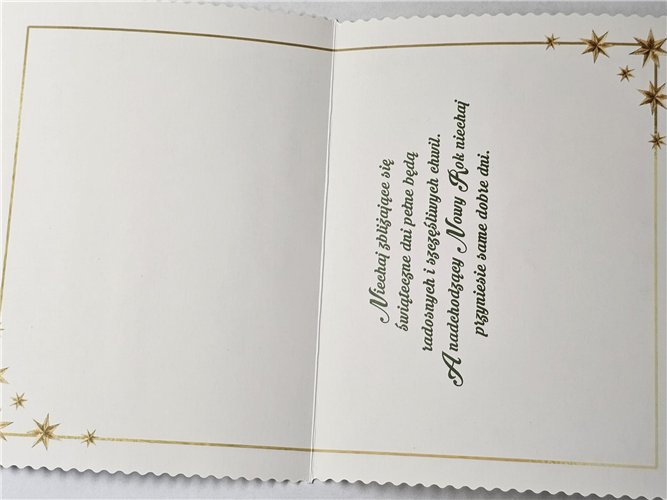 Niechaj zbliżające się
świąteczne dni pełne będą
radosnych i szczęśliwych chwil.
A nadchodzący Nowy Rok niechaj
przyniesie same dobre dni.